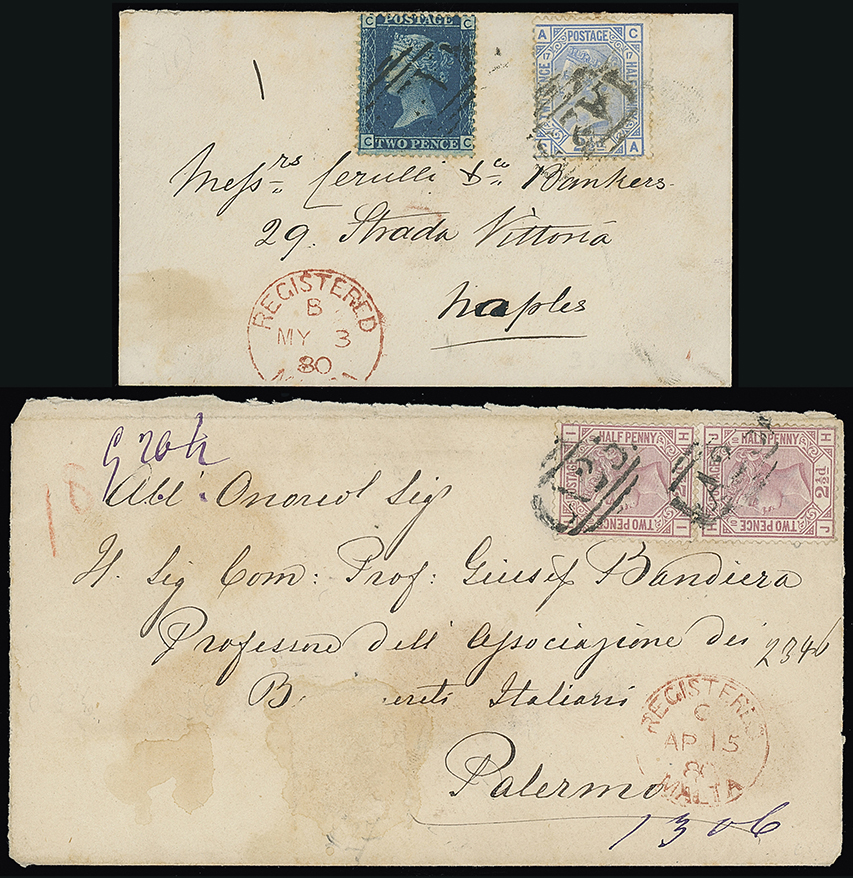 C POSTAGE C
C TWO PENCE C
A POSTAGE C
17 17
A
Messrs Cerulli & Co Bankers
29. Strada Vittoria
Naples
REGISTERED
B
MY 3
80
G 20 h
All. Onorevol Sig
Il Sig Com: Prof: Giusep Bandiera
Professore dell Associazione dei
2346
B ereti Italiani
Palermo
1306
I HALF PENNY H
TWO PENCE
POSTAGE
I
J HALF PENNY H
2½d
H TWO PENCE J
A25
REGISTERED
C
AP 15
8
MALTA